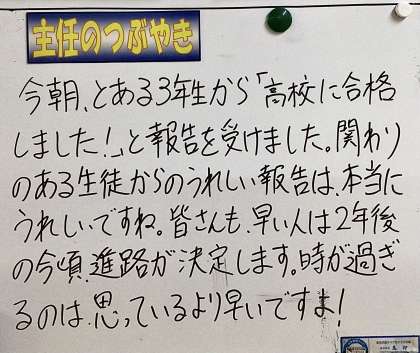 主任のつぶやき
今朝、とある3年生から「高校に合格
しました!」と報告を受けました。関わり
のある生徒からのうれしい報告は、本当に
うれしいですね。皆さんも、早い人は2年後
の今頃、進路が決定します。時が過ぎ
るのは、思っているより早いですよ!